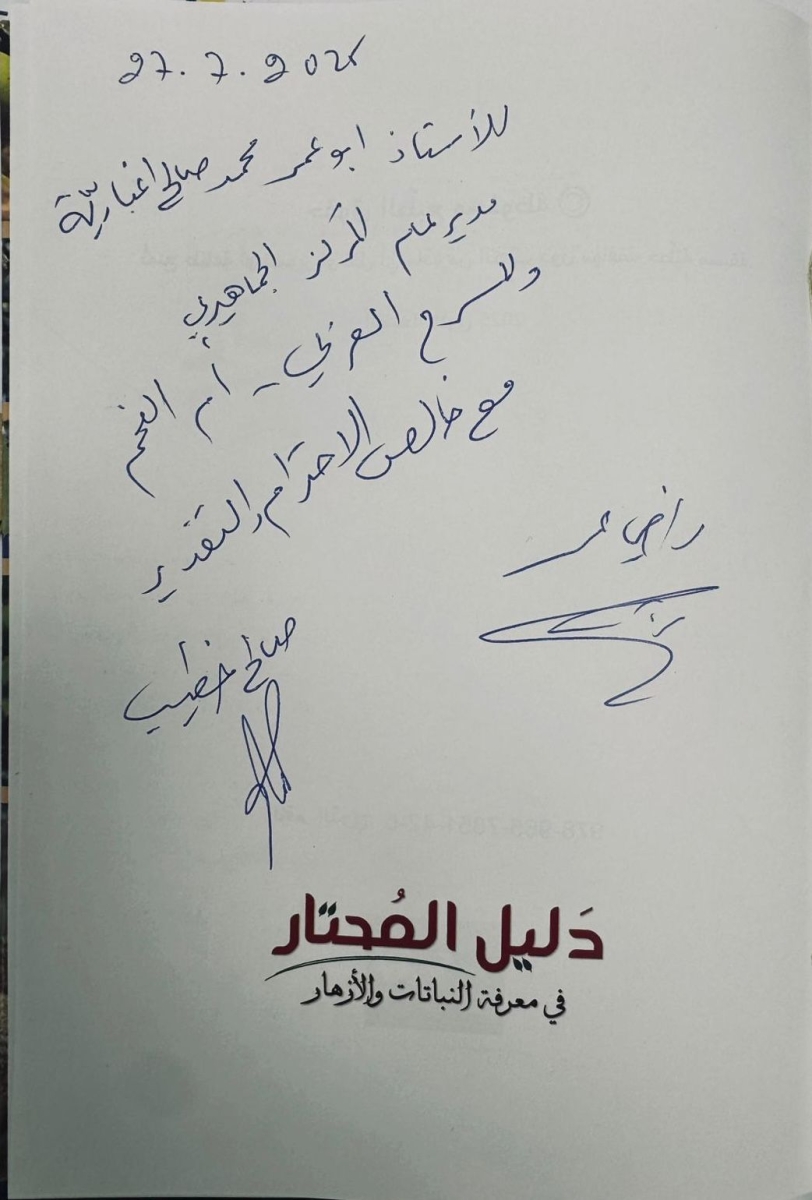 27.7.2025
للأستاذ ابو عمر محمد صالح اغباريّة
مدير عام المركز الجماهيري
والمسرح العربي - أم الفحم
مع خالص الاحترام والتقدير
راضي عمر
صالح خطيب
دَليل المُحتار
في معرفة النباتات والأزهار